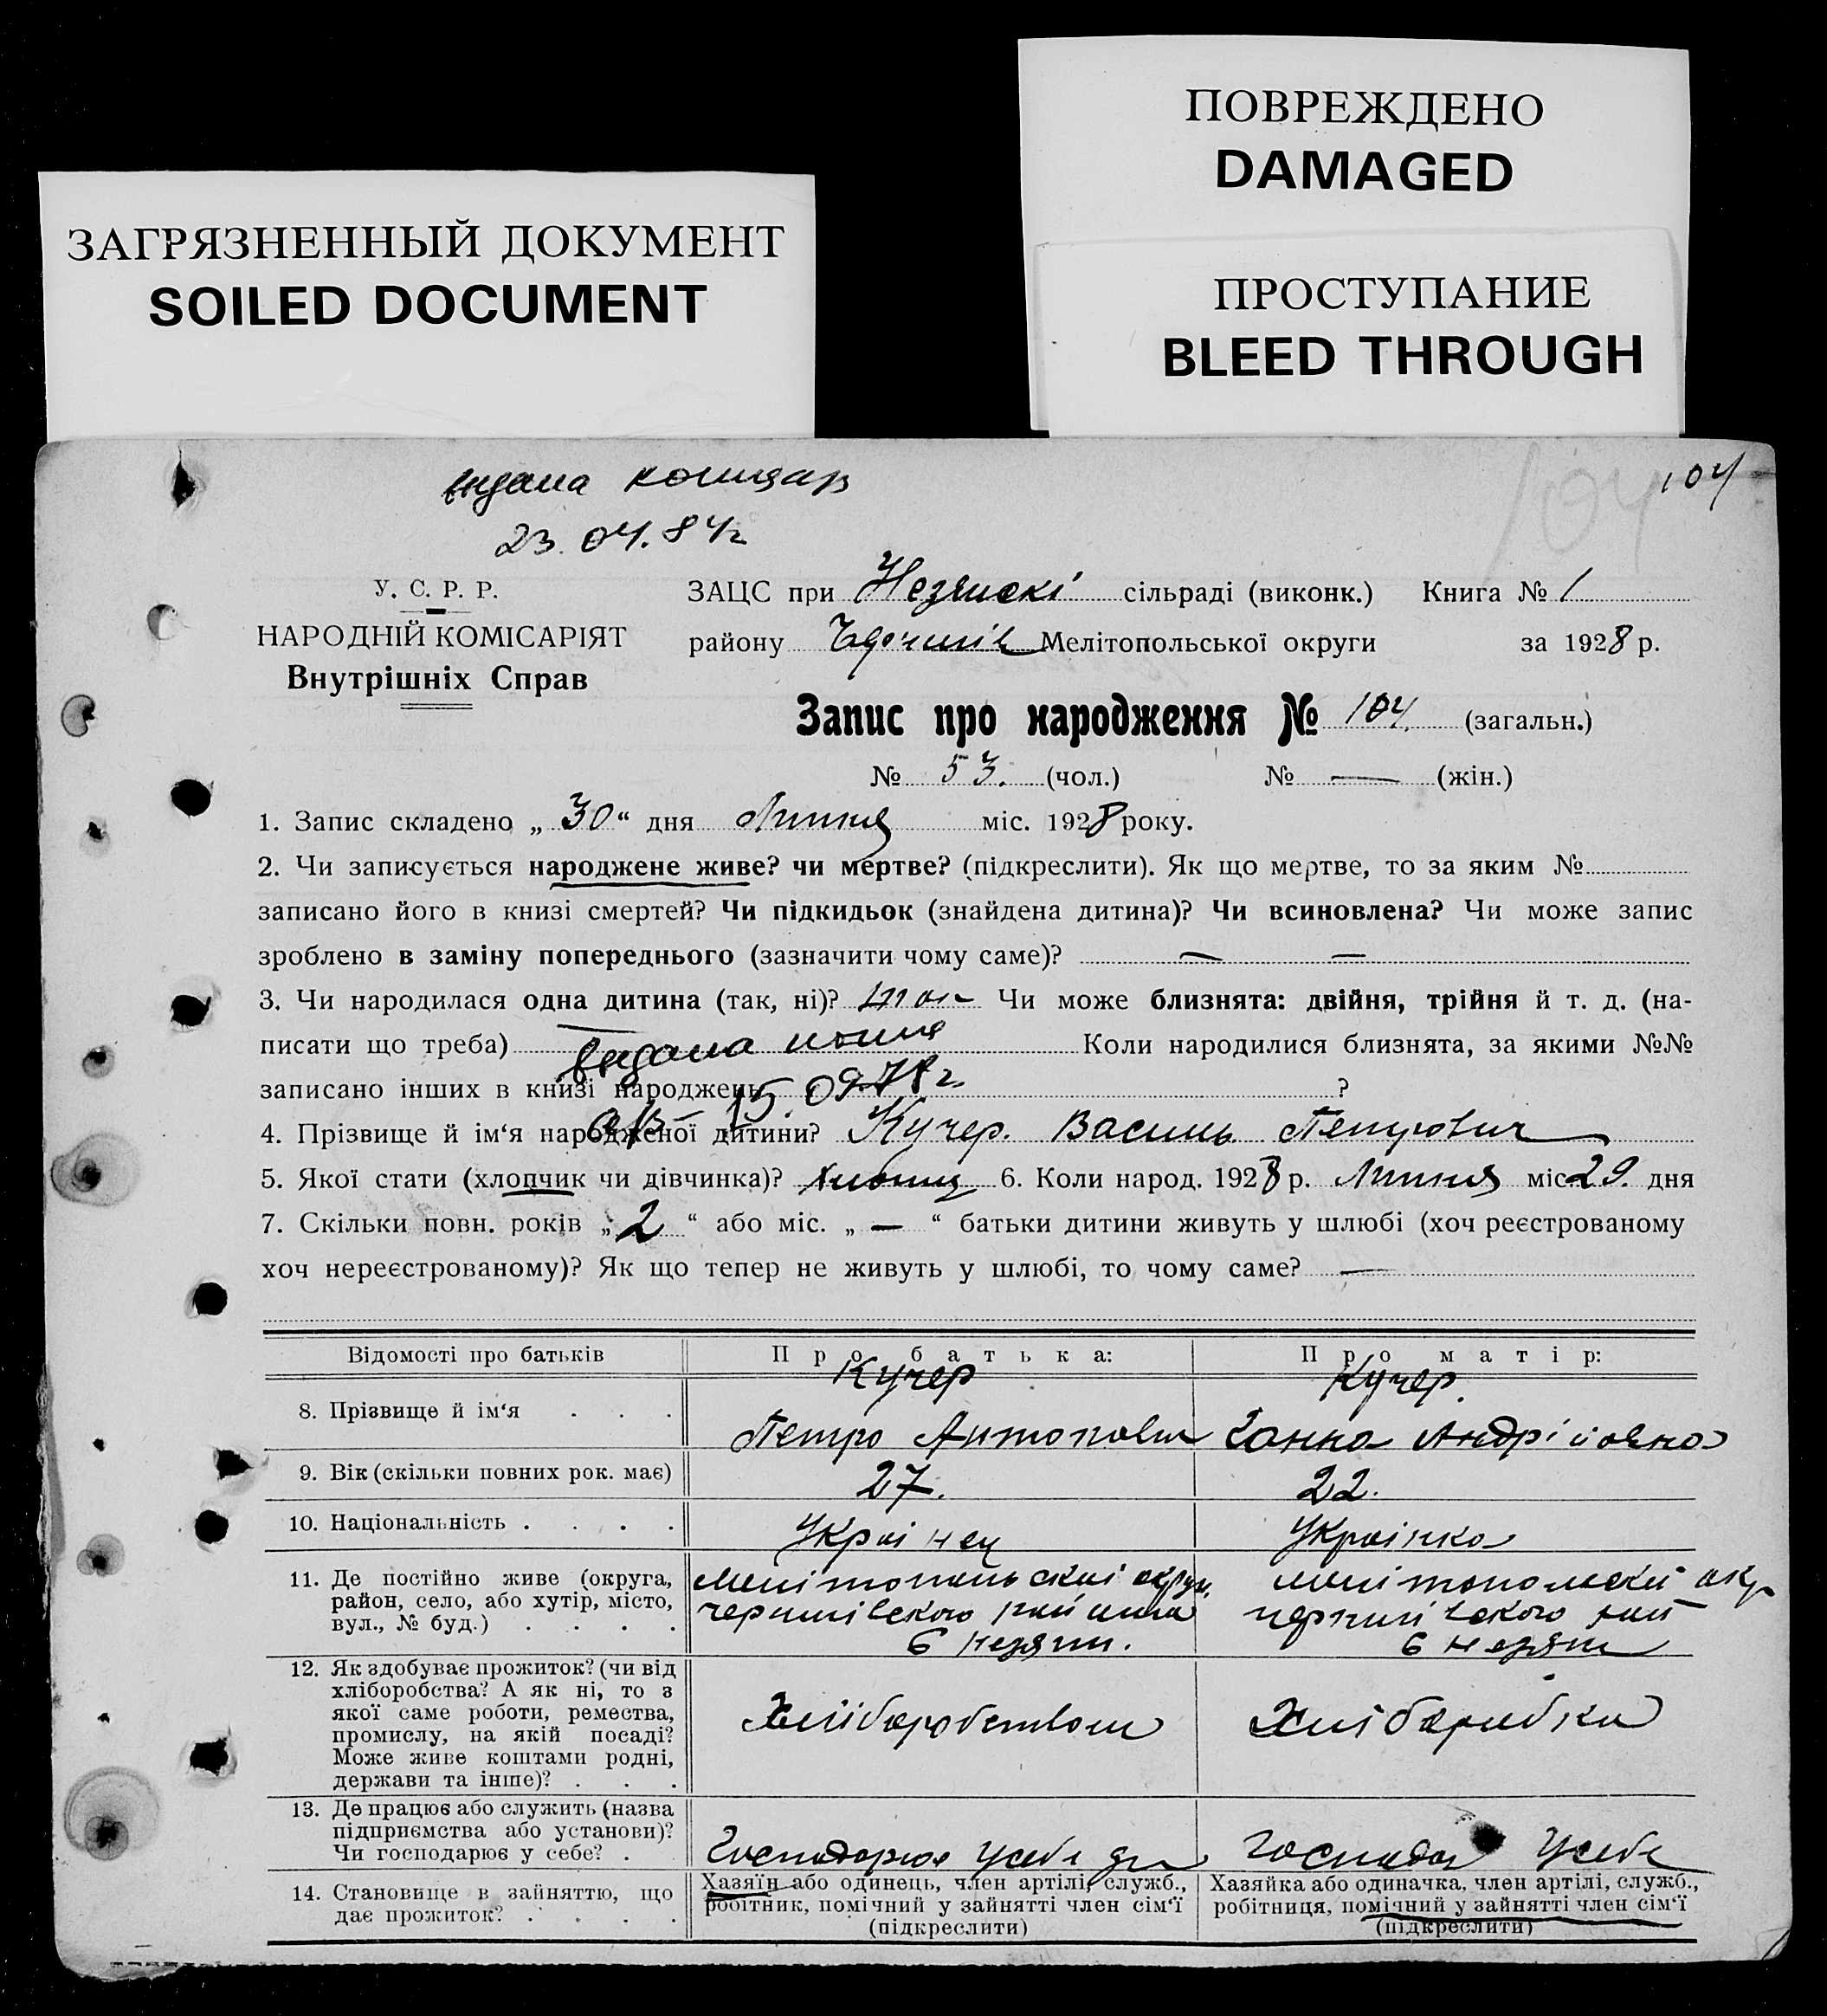 ПОВРЕЖДЕНО
DAMAGED
ЗАГРЯЗНЕННЫЙ ДОКУМЕНТ
SOILED DOCUMENT
ПРОСТУПАНИЕ
BLEED THROUGH
104
104
видана
23.04.84г
У. С. Р. Р.
НАРОДНІЙ КОМІСАРІЯТ
Внутрішніх Справ
ЗАЦС при сільраді (виконк.) Книга № 1
району Мелітопольської округи за 1928 р.
Запис про народження № 104. (загальн.)
№ 53. (чол.) № — (жін.)
1. Запис складено „ 30 “ дня Липня міс. 1928 року.
2. Чи записується народжене живе? чи мертве? (підкреслити). Як що мертве, то за яким №
записано його в книзі смертей? Чи підкидьок (знайдена дитина)? Чи всиновлена? Чи може запис
зроблено в заміну попереднього (зазначити чому саме)? — —
3. Чи народилася одна дитина (так, ні)? так Чи може близнята: двійня, трійня й т. д. (на-
писати що треба) видана Коли народилися близнята, за якими №№
записано інших в книзі народжень 15.09.78г. ?
4. Прізвище й ім‘я народженої дитини? Кучер. Василь Петрович
5. Якої стати (хлопчик чи дівчинка)? 6. Коли народ. 1928 р. Липня міс. 29. дня
7. Скільки повн. років „ 2 “ або міс. „ — “ батьки дитини живуть у шлюбі (хоч реєстрованому
хоч нереєстрованому)? Як що тепер не живуть у шлюбі, то чому саме? —
Відомості про батьків Про батька: Про матір:
8. Прізвище й ім‘я . . . Кучер Петро Антонович Кучер. Ганна Андрійовна
9. Вік (скільки повних рок. має) 27. 22.
10. Національність . . . . Українец Українка
11. Де постійно живе (округа,
район, село, або хутір, місто,
вул., № буд.) . . . .
12. Як здобуває прожиток? (чи від
хліборобства? А як ні, то з
якої саме роботи, ремества,
промислу, на якій посаді?
Може живе коштами родні,
держави та інше)? . . .
Хліборобством
13. Де працює або служить (назва
підприємства або установи)?
Чи господарює у себе? .
Господарює
14. Становище в зайняттю, що
дає прожиток? . . . .
Хазяїн або одинець, член артілі, служб.,
робітник, помічний у зайнятті член сім‘ї
(підкреслити)
Хазяйка або одиначка, член артілі, служб.,
робітниця, помічний у зайнятті член сім‘ї
(підкреслити)